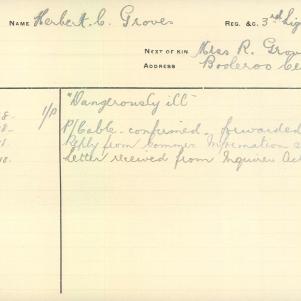 NAME Herbert. C. Groves REG. &C. 3rd Lig
NEXT OF KIN Mrs R. Grov
ADDRESS Booleroo Ce
8. 1/P "Dangerously ill"
8- P/Cable confirmed, forwarded
8. Reply from commn Information
10. Letter received from Inquirer